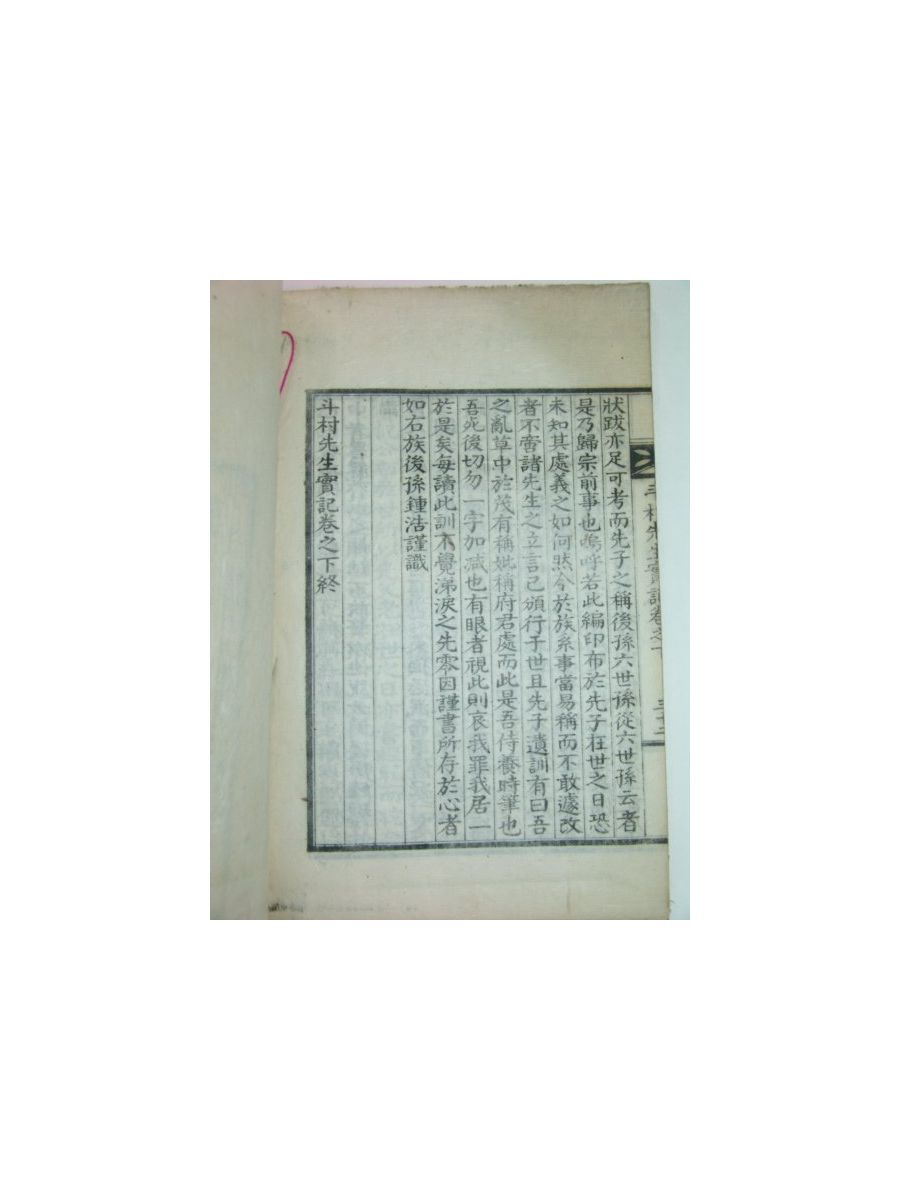 狀跋亦足可考而先子之稱後孫六世孫從六世孫云者
是乃歸宗前事也嗚呼若此編印布於先子在世之日恐
未知其處義之如何然今於族系事當易稱而不敢遽改
者不啻諸先生之立言已頒行于世且先子遺訓有曰吾
之亂草中於茂有稱妣稱府君處而此是吾侍養時筆也
吾死後切勿一字加减也有眼者視此則哀我罪我居一
於是矣每讀此訓不覺涕淚之先零因謹書所存於心者
如右族後孫鍾浩謹識
斗村先生實記卷之下終